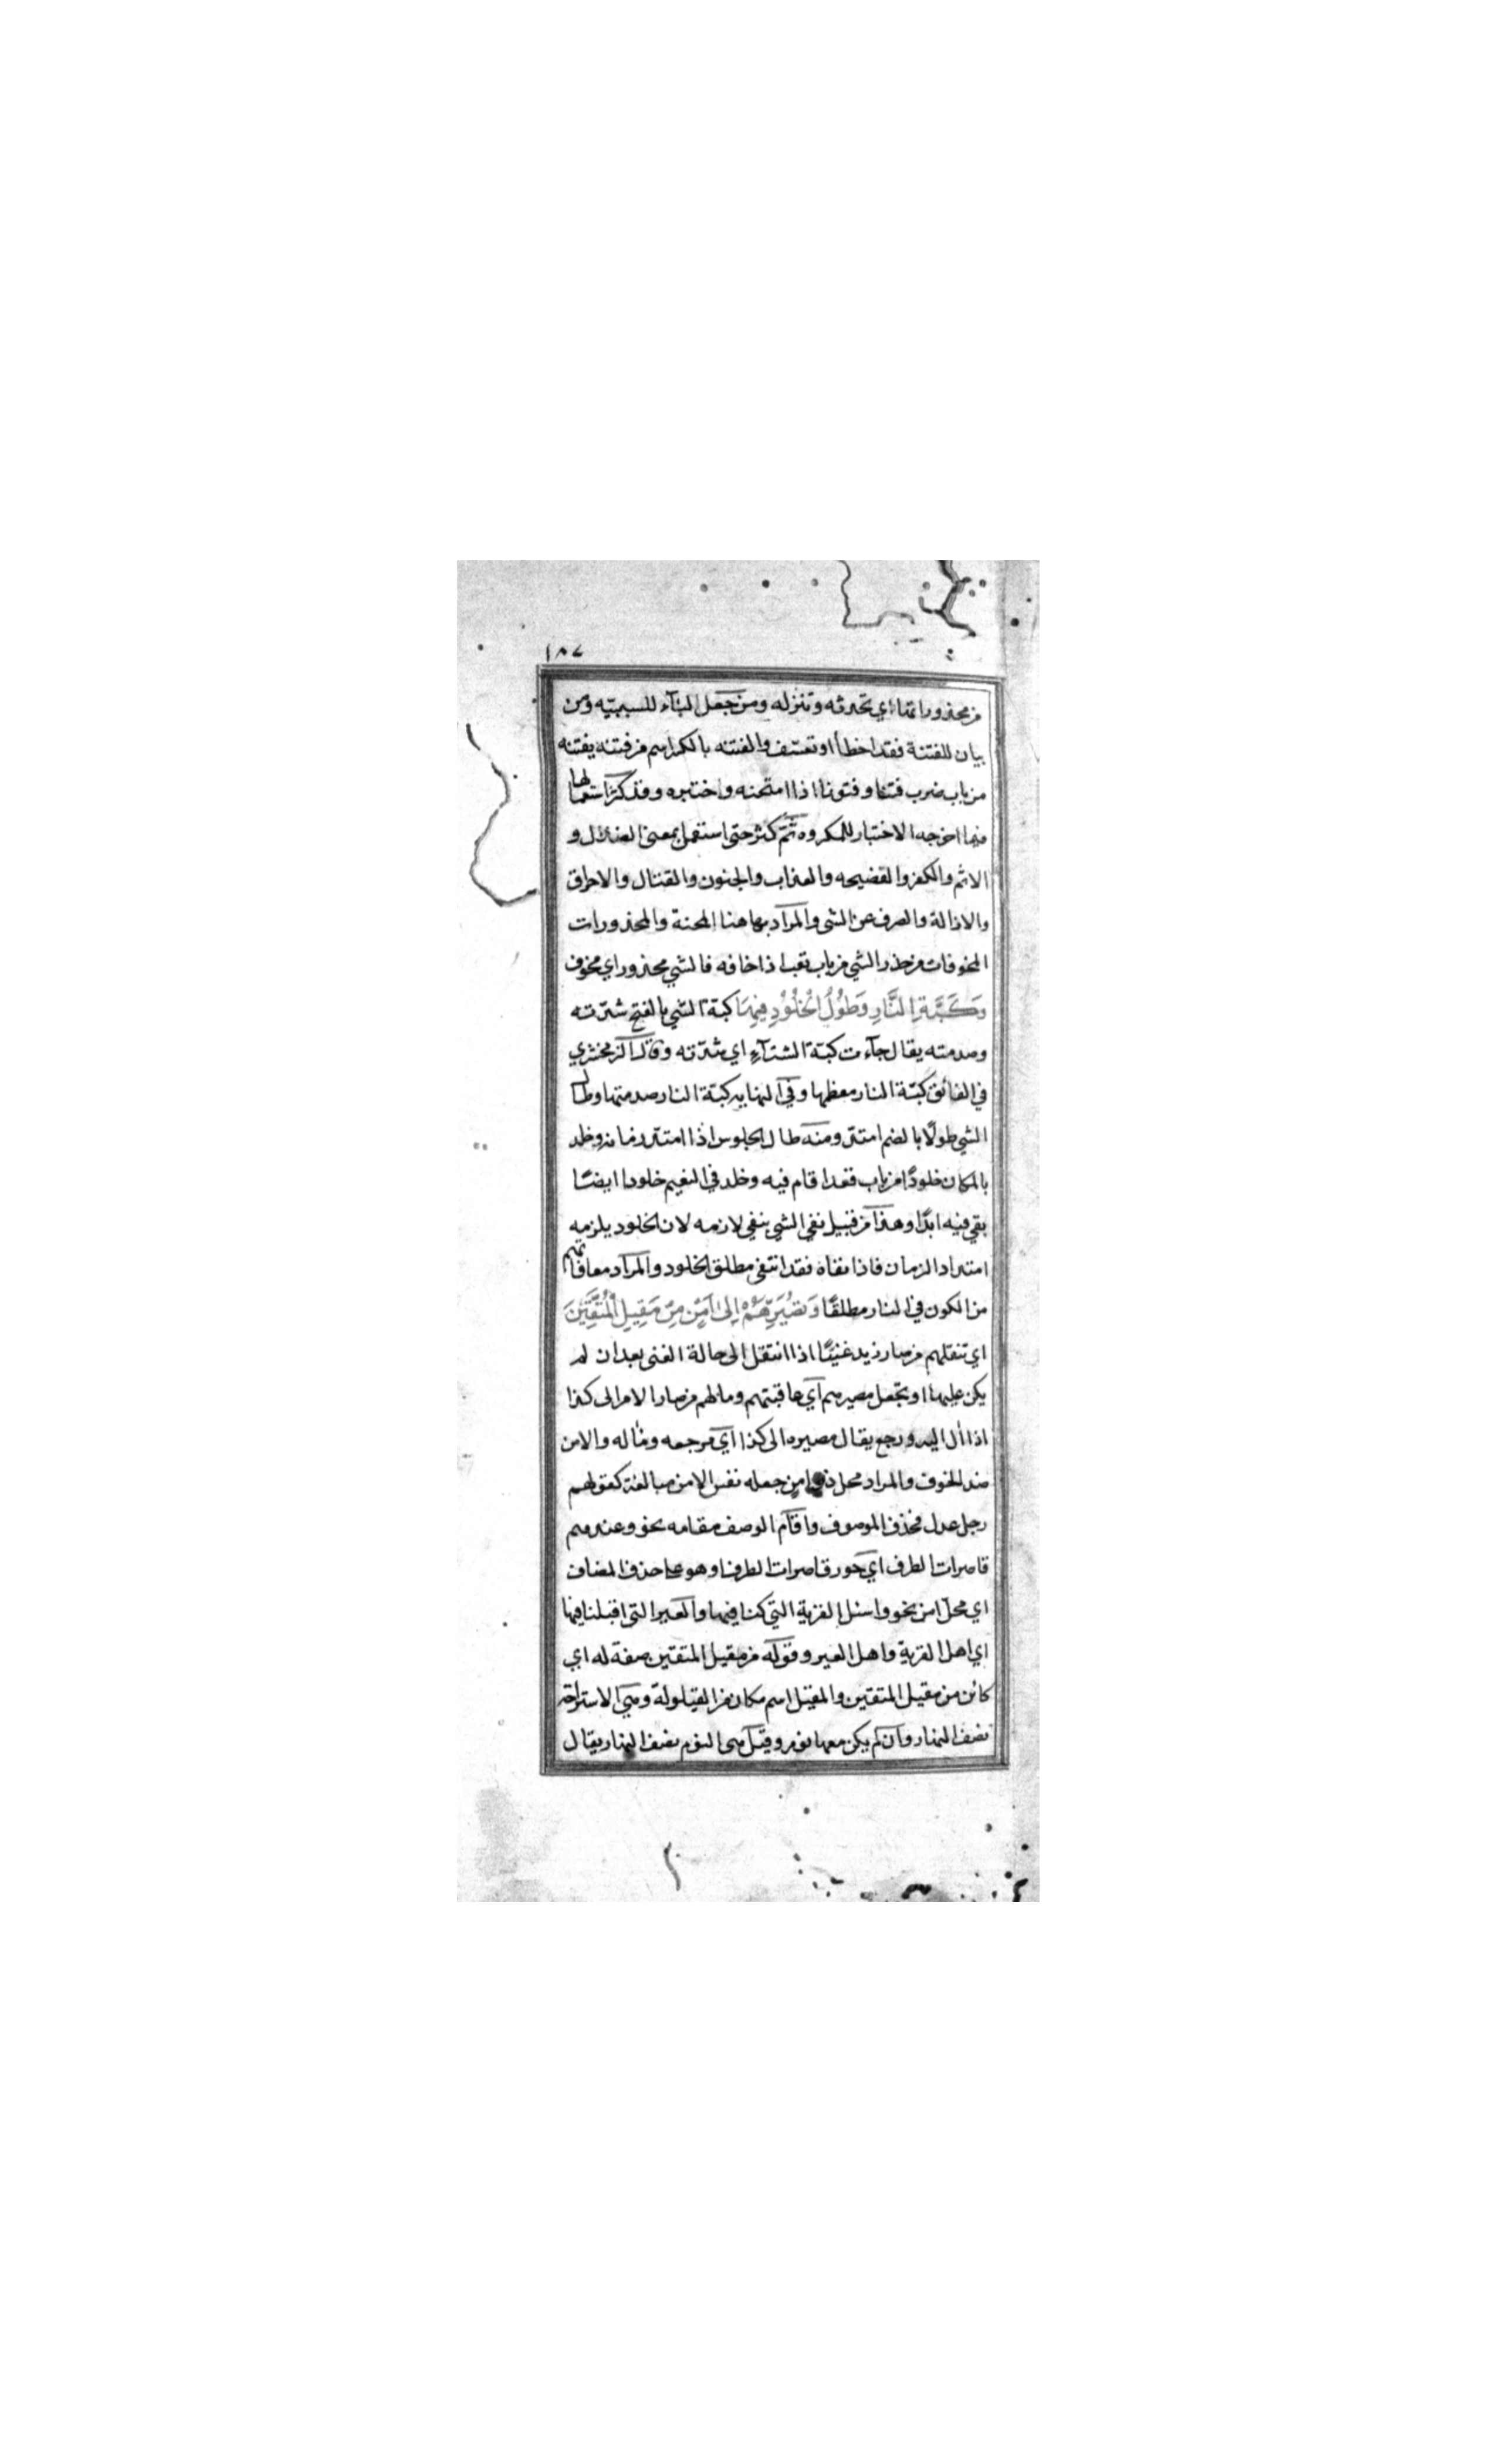 ١٨٧
من محذوراتها اي تحدثه وتنزله ومن جعل الباء للسببيّه ومن
بيان للفتنة فقد اخطأ او تعسّف والفتنه بالكسر اسم من فتنه يفتنه
من باب ضرب فتنا وفتونا اذا امتحنه واختبره وقد كثر استعمالها
فيما اخرجه الاختبار للمكروه ثم كثر حتى استعمل بمعنى الضلال و
الاثم والكفر والفضيحه والعذاب والجنون والقتال والاحراق
والازالة والصرف عن الشي والمراد بها هنا المحنة والمحذورات
المخوفات من حذر الشي من باب تعب اذا خافه فالشي محذور اي مخوف
وَكَبَّةِ النَّارِ وَطُولِ الْخُلُودِ فِيهَا كبّة الشي بالفتح شدّته
وصدمته يقال جآءت كبّة الشتآءِ اي شدّته وقال الزمخشري
في الفائق كبّة النار معظمها وفي النهايه كبّة النار صدمتها وطال
الشي طولًا بالضم امتدّ ومنه طال الجلوس اذا امتدّ زمانه وخلد
بالمكان خلودًا من باب قعد اقام فيه وخلد في النعيم خلودا ايضًا
بقي فيه ابدًا وهذا من قبيل نفي الشي بنفي لازمه لان الخلود يلزمه
امتداد الزمان فاذا نفاه فقد انتفى مطلق الخلود والمراد معافاتهم
من الكون في النار مطلقًا وَتُصَيِّرَهُمْ اِلى اَمْنٍ مِنْ مَقِيلِ الْمُتَّقِينَ
اي تنقلهم من صار زيد غنيًّا اذا انتقل الى حالة الغنى بعد ان لم
يكن عليها او تجعل مصيرهم اي عاقبتهم ومالهم من صار الامر الى كذا
اذا أل اليه ورجع يقال مصيره الى كذا اي مرجعه ومأله والامن
ضد الخوف والمراد محل ذي امن جعله نفس الامن مبالغة كقولهم
رجل عدل فحذف الموصوف واقام الوصف مقامه نحو وعندهم
قاصرات الطرف اي حور قاصرات الطرف او هو على حذف المضاف
اي محلّ امن نحو واسئل القرية التي كنا فيها والعير التي اقبلنا فيها
اي اهل القرية واهل العير وقوله من مقيل المتقين صفة له اي
كائن من مقيل المتقين والمقيل اسم مكان من القيلولة وهي الاستراحة
نصف النهار وان لم يكن معها نوم وقيل هي النوم نصف النهار يقال